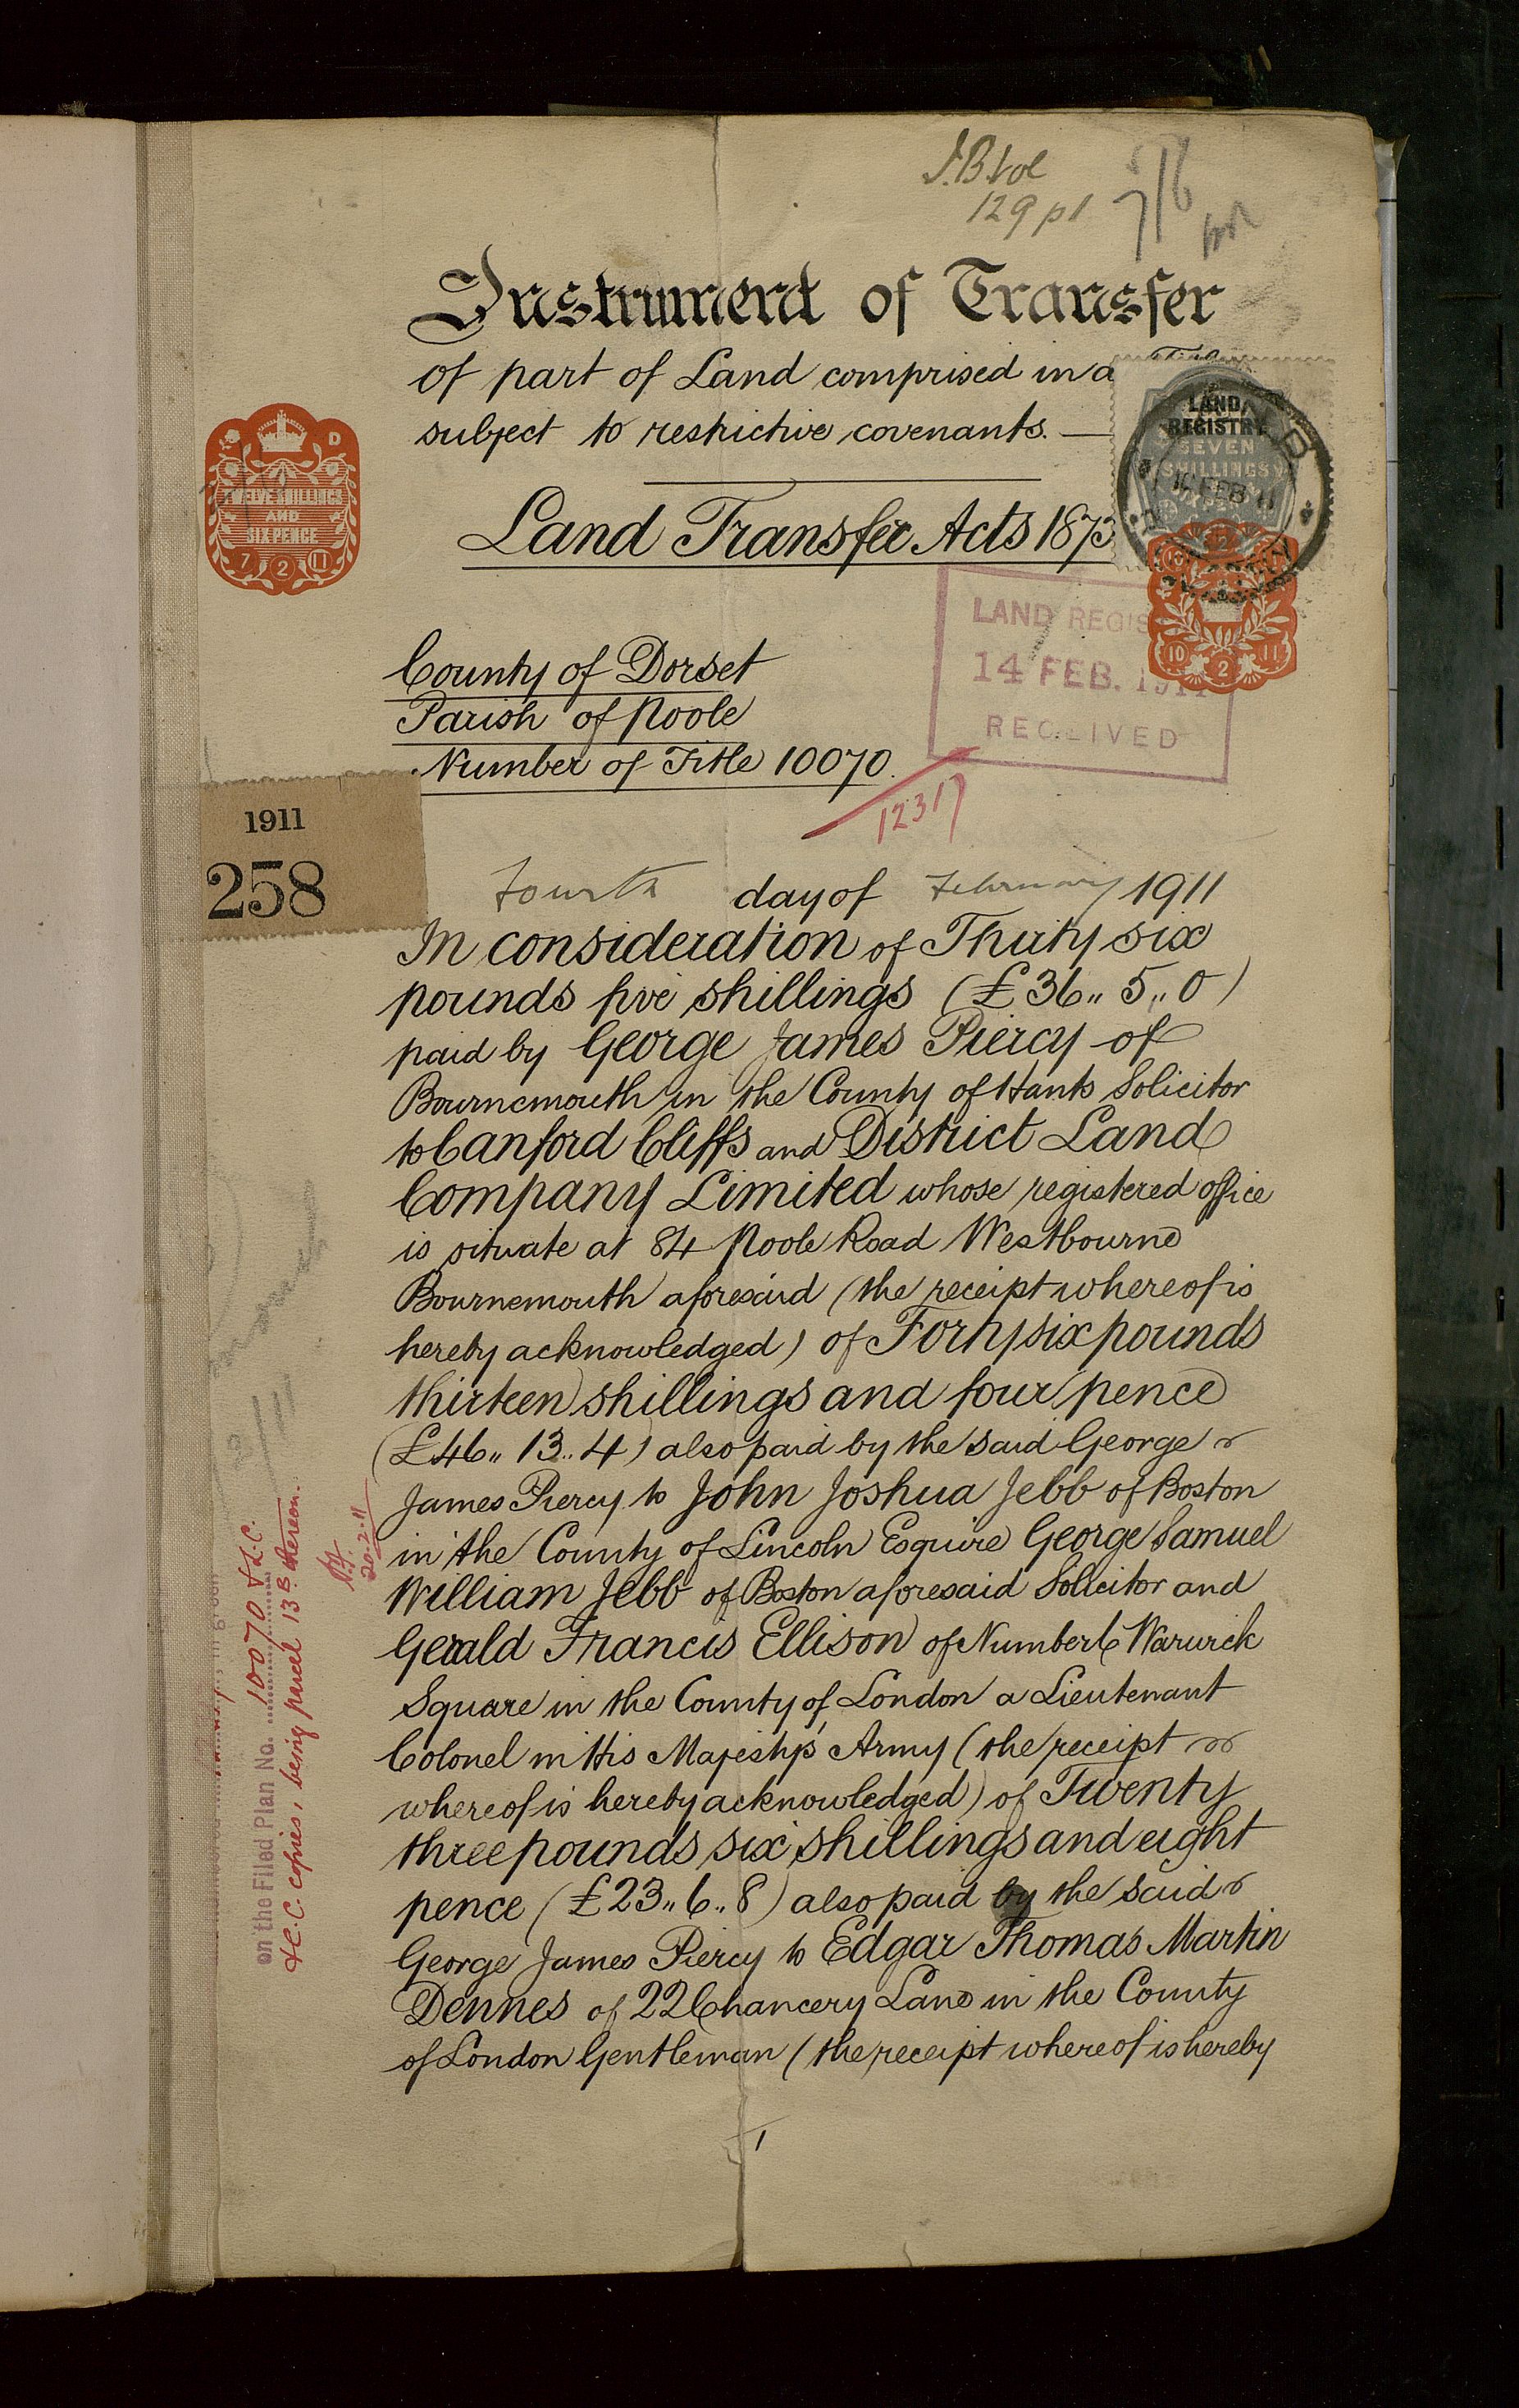 J.B. vol
129 p 1
7/6
Instrument of Transfer
of part of Land comprised in a
subject to restrictive covenants. —
LAND REGISTRY
SEVEN
SHILLINGS
10 FEB 11
D
TWELVE SHILLINGS
AND
SIX PENCE
7 2 11
Land Transfer Acts 1873
10 2 11
LAND REGIS
14 FEB. 1911
RECEIVED
County of Dorset
Parish of Poole
Number of Title 10070.
12317
1911
258
Fourth day of February 1911
In consideration of Thirty six
pounds five shillings (£36,, 5,, 0)
paid by George James Piercy of
Bournemouth in the County of Hants Solicitor
to Canford Cliffs and District Land
Company Limited whose registered office
is situate at 84 Poole Road Westbourne
Bournemouth aforesaid (the receipt whereof is
hereby acknowledged) of Forty six pounds
thirteen shillings and four pence
(£46,, 13,, 4) also paid by the said George
James Piercy to John Joshua Jebb of Boston
in the County of Lincoln Esquire George Samuel
William Jebb of Boston aforesaid Solicitor and
Gerald Francis Ellison of Number 6 Warwick
Square in the County of London a Lieutenant
Colonel in His Majesty's Army (the receipt
whereof is hereby acknowledged) of Twenty
three pounds six shillings and eight
pence (£23,, 6,, 8) also paid by the said
George James Piercy to Edgar Thomas Martin
Dennes of 22 Chancery Lane in the County
of London Gentleman (the receipt whereof is hereby
1
on the Filed Plan No. 10070 & L.C.
& C.C. copies, being parcel 13B thereon.
20-2-11